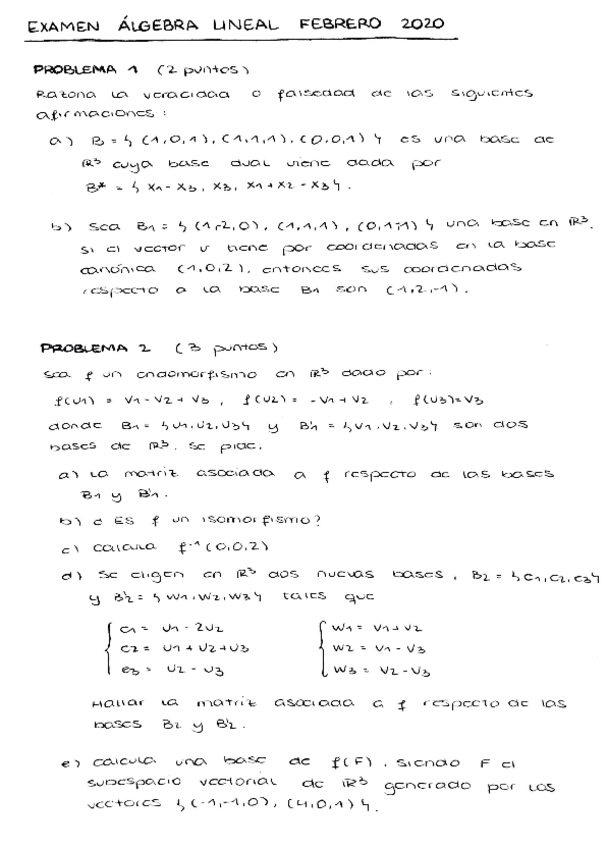 EXAMEN ÁLGEBRA LINEAL FEBRERO 2020
PROBLEMA 1 (2 puntos)
Razona la veracidad o falsedad de las siguientes
afirmaciones:
a) B = {(1,0,1), (1,1,1), (0,0,1)} es una base de
ℝ³ cuya base dual viene dada por
B* = {x1-x3, x3, x1+x2-x3}.
b) Sea B1 = {(1,-2,0), (1,1,1), (0,1,-1)} una base en ℝ³.
si el vector v tiene por coordenadas en la base
canónica (1,0,2), entonces sus coordenadas
respecto a la base B1 son (1,2,-1).
PROBLEMA 2 (3 puntos)
Sea f un endomorfismo en ℝ³ dado por:
f(u1) = v1-v2+v3, f(u2) = -v1+v2, f(u3)=v3
donde B1={u1,u2,u3} y B'1={v1,v2,v3} son dos
bases de ℝ³. Se pide.
a) La matriz asociada a f respecto de las bases
B1 y B'1.
b) ¿ES f un isomorfismo?
c) calcula f⁻¹(0,0,2)
d) Se eligen en ℝ³ dos nuevas bases, B2={e1,e2,e3}
y B'2={w1,w2,w3} tales que
e1 = u1-2u2 w1 = v1+v2
e2 = u1+u2+u3 w2 = v1-v3
e3 = u2-u3 w3 = v2-v3
Hallar la matriz asociada a f respecto de las
bases B2 y B'2.
e) calcula una base de f(F), siendo F el
subespacio vectorial de ℝ³ generado por los
vectores {(-1,-1,0), (4,0,1)}.